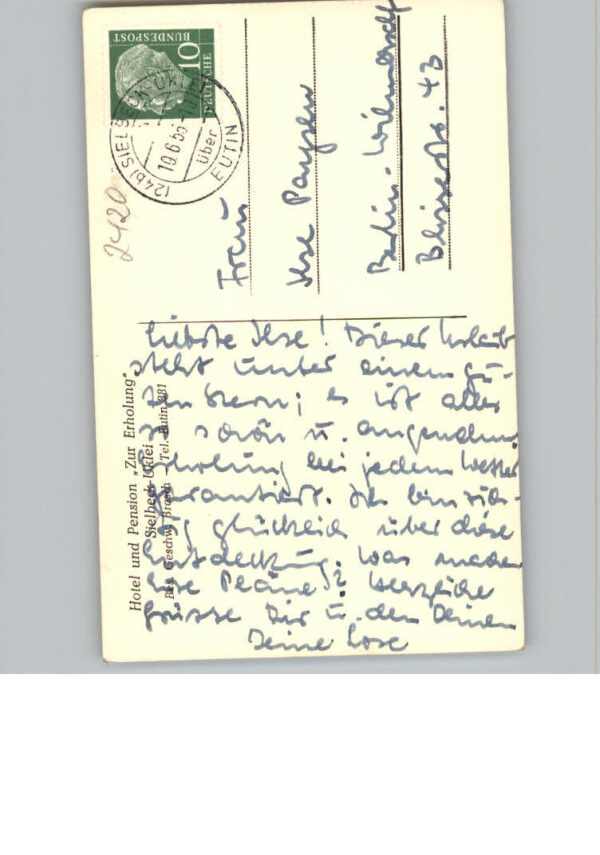 DEUTSCHE
BUNDESPOST
10
(24b) SIELBECK-UKLEI
über
EUTIN
10.6.55
2420
Frau
Ilse Paysen
Berlin-Wilmersdorf
Blissestr. 43
Hotel und Pension „Zur Erholung"
Sielbeck-Uklei
Bes. Geschw. Tel. Eutin 881
Liebste Ilse! Dieser Urlaub
steht unter einem gu-
ten Stern; es ist alles
so schön u. angenehm
Erholung bei jedem Wetter
garantiert. Ich bin rich-
tig glücklich über diese
Entdeckung. Was machen
Eure Pläne? Herzliche
Grüsse Dir u. den Deinen
Deine Lore